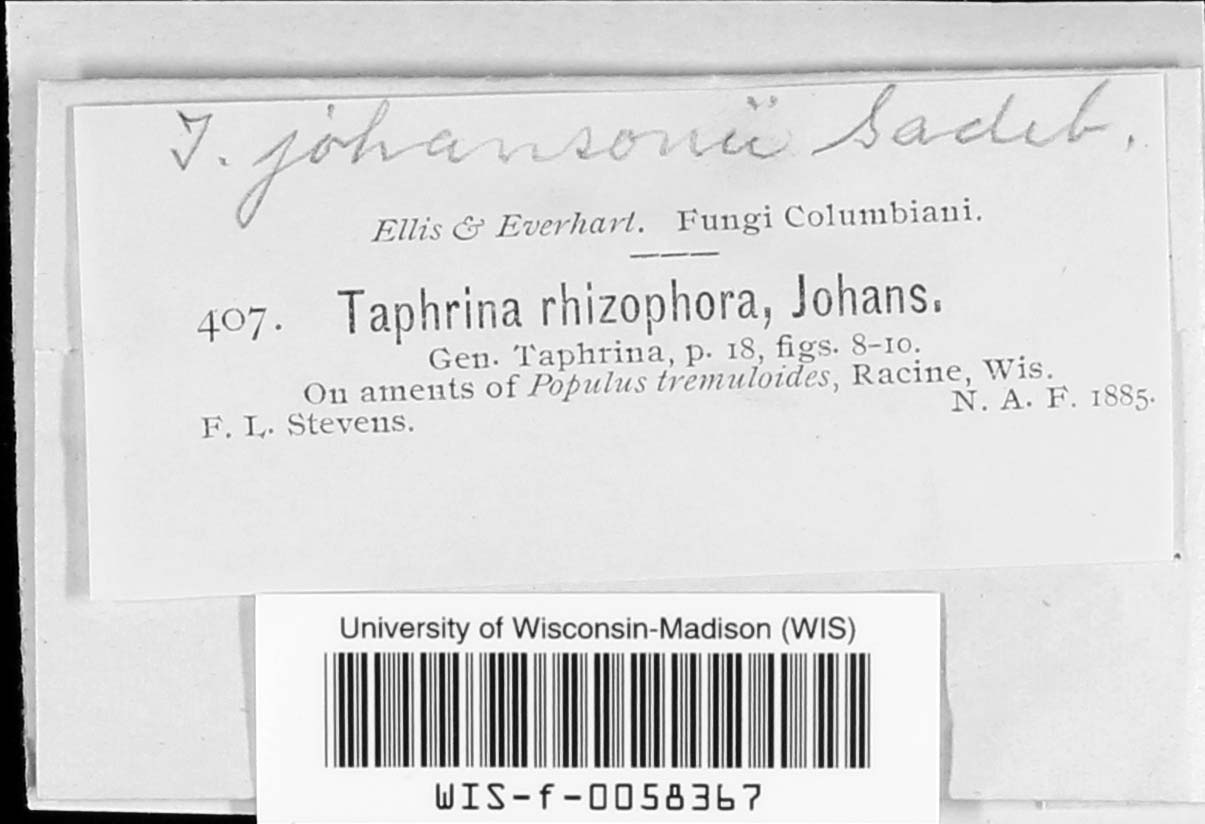 T. johansonii Sadeb.
Ellis & Everhart. Fungi Columbiani.
407. Taphrina rhizophora, Johans.
Gen. Taphrina, p. 18, figs. 8-10.
On aments of Populus tremuloides, Racine, Wis.
N. A. F. 1885.
F. L. Stevens.
University of Wisconsin-Madison (WIS)
WIS-f-0058367